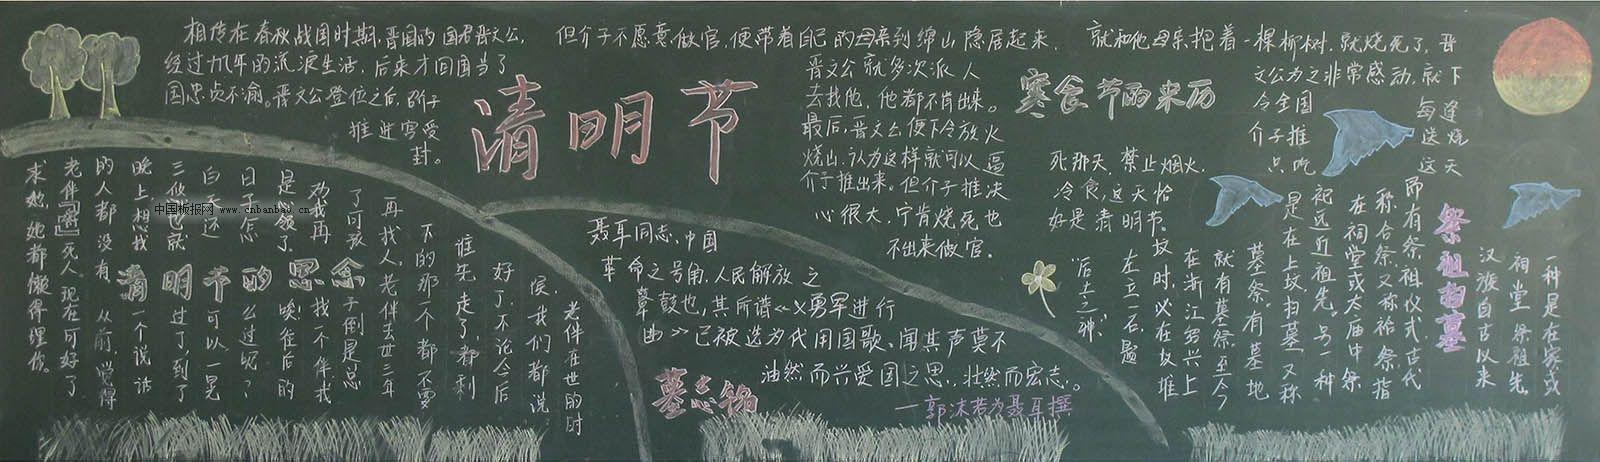 清明节
相传在春秋战国时期,晋国的国君晋文公,
经过九年的流浪生活,后来才回国当了
国忠贞不渝。晋文公登位之后,召介子
推进宫受
封。
但介子不愿意做官,便带着自己的母亲到绵山隐居起来,
晋文公就多次派人
去找他,他都不肯出来。
最后,晋文公便下令放火
烧山,认为这样就可以逼
介子推出来。但介子推决
心很大,宁肯烧死也
不出来做官。
寒食节的来历
就和他母亲抱着一棵柳树,就烧死了,晋
文公为之非常感动,就下
令全国
介子推
只吃
每逢
送烧
这天
死那天,禁止烟火,
冷食,这天恰
好是清明节。
祭祖扫墓
一种是在家或
祠堂祭祖先。
汉族自古以来
而有祭祖仪式,古代
称合祭,又称祫祭,指
在祠堂或太庙中祭
祀远近祖先。另一种
是在上坟,扫墓,又称
墓祭。有墓地
就有墓祭,至今
在浙江绍兴上
坟时,必在坟堆
左立一石,题
“后土之神”。
清明节的思念
老伴在世的时
侯,我们都说
好了,不论今后
谁先走了,都剩
下的那一个都不要
再找人,老伴去世三年
了,可孩
子倒是总
劝我再
找一个伴,我
是领了
唉!往后的
日子怎
么过呢?
白天还
可以,一晃
三他也就
过了,到了
晚上想找
一个说话
的人都没有,从前,觉得
老伴“烦”死人。现在可好了
求她,她都懒得理你。
聂耳同志,中国
革命之号角,人民解放之
鼙鼓也,其所谱《义勇军进行
曲》已被选为代用国歌、闻其声莫不
油然而兴爱国之思,壮然而宏志。
——郭沫若为聂耳撰
墓志铭
中国板报网 www.cnbanbao.cn